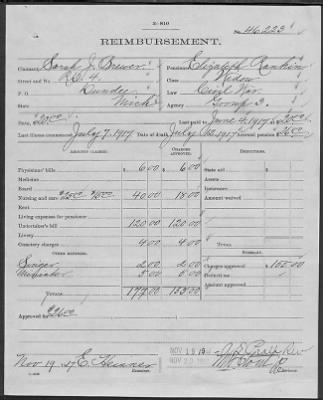 3-810
46,223
REIMBURSEMENT.
Claimant, Sarah J. Brewer Pensioner, Elizabeth Rankin
Street and No. R.D. 4. Class, Widow
P. O. Dundee War, Civil War
State, Mich. Agency, Group 3.
Rate, $20.00 Last paid to June 4, 1917 $20.00
Last illness commenced July 7, 1917 Date of death July 1917 Accrued Pension, $26.00
AMOUNT CLAIMED. CHARGES APPROVED. DEDUCTIONS.
Physicians' bills $6.00 $6.00 State aid $
Medicine Insurance
Board Amount waived
Nursing and care 40.00 18.00
Rent
Living expense for pensioner
Undertaker's bill 120.00 120.00
Livery
Cemetery charges 4.00 4.00
OTHER EXPENSES. SUMMARY.
Singer 2.00 2.00 Charges approved $155.00
5.00 5.00 Deduct
TOTALS 177.00 155.00 Amount approved $
Approved for $26.00
Nov 19 E. Examiner.
NOV 19 19
NOV 20